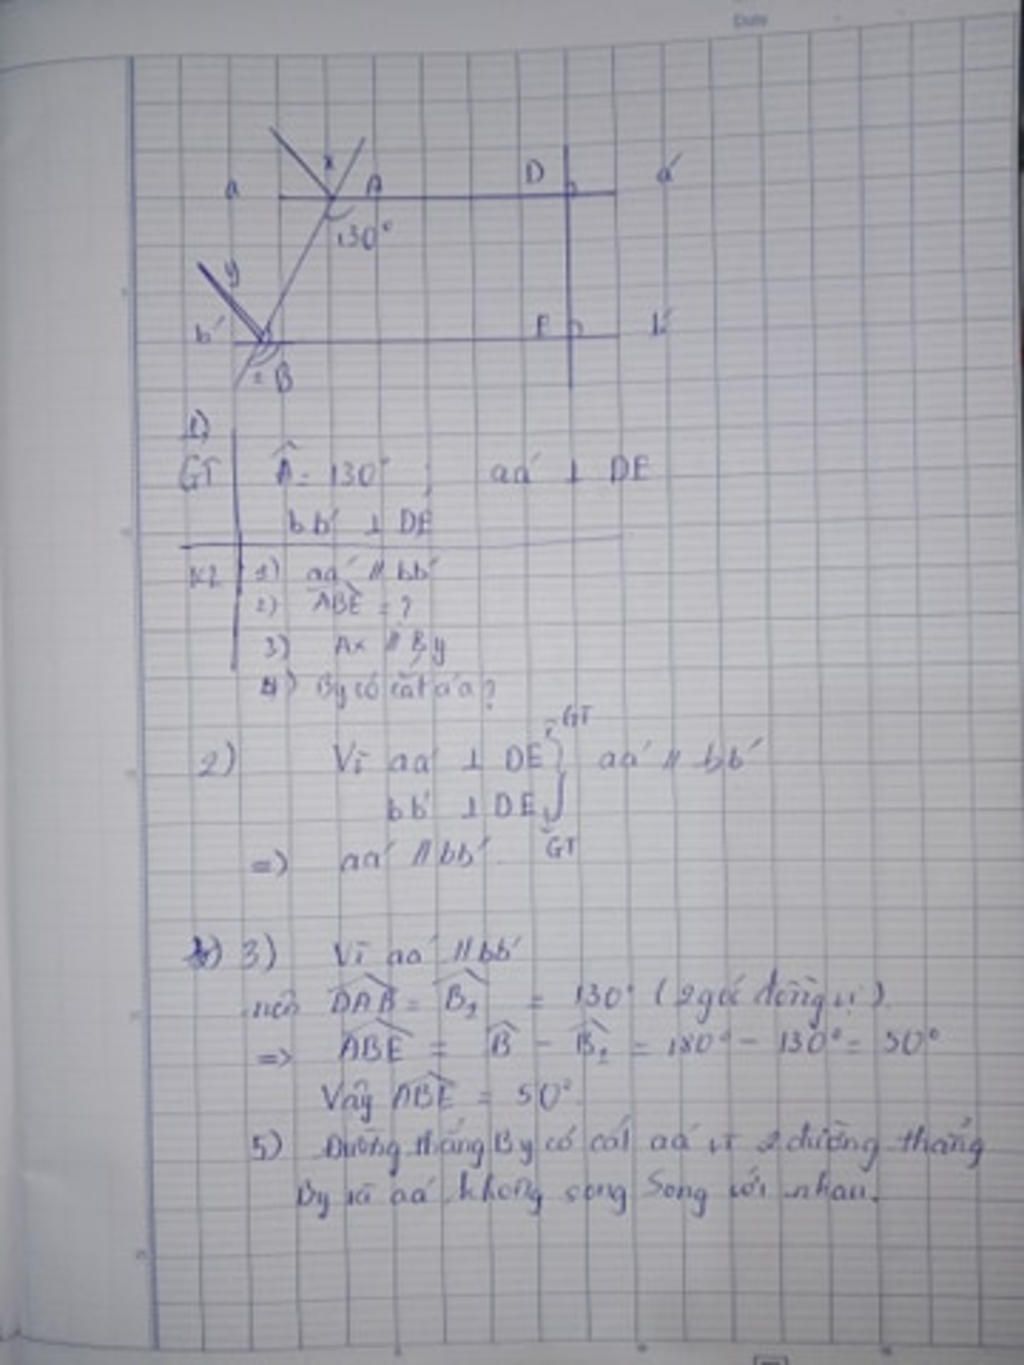 Date
x
a A D a'
130°
y
b' E b
2 B
1)
GT Â = 130° ; aa' ⊥ DE
bb' ⊥ DE
KL 1) aa' // bb'
2) ABE = ?
3) Ax // By
4) By có cắt a'a?
GT
2) Vì aa' ⊥ DE } aa' // bb'
bb' ⊥ DE
GT
=> aa' // bb'
3) Vì aa' // bb'
nên DAB = B₂ = 130° (2 góc đồng vị)
=> ABE = B - B₂ = 180° - 130° = 50°
Vậy ABE = 50°
5) Đường thẳng By có cắt aa' vì 2 đường thẳng
By và aa' không song song với nhau.